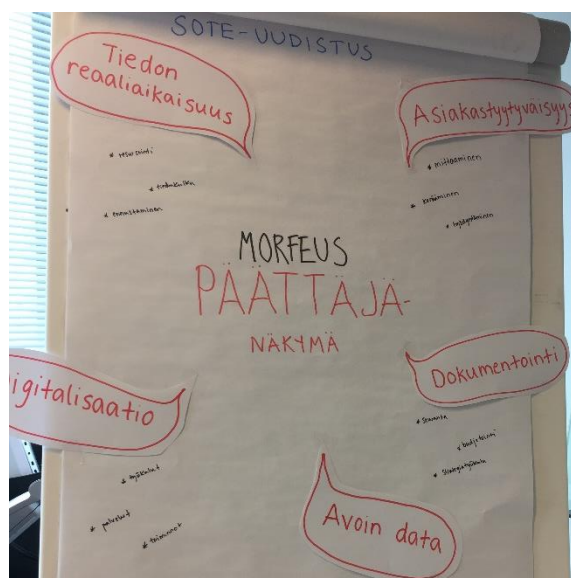 SOTE-UUDISTUS
Tiedon
reaaliaikaisuus
* resursointi
* tiedonkulku
* ennustaminen
Asiakastyytyväisyys
* mittaaminen
* kerääminen
MORFEUS
PÄÄTTÄJÄ-
NÄKYMÄ
igitalisaatio
* työkalut
* palvelut
* toiminnot
Dokumentointi
* seuranta
* budjetointi
Avoin data